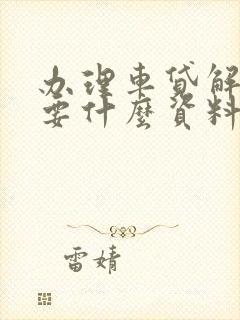 办理車貸解
要什麼資料
雷婧